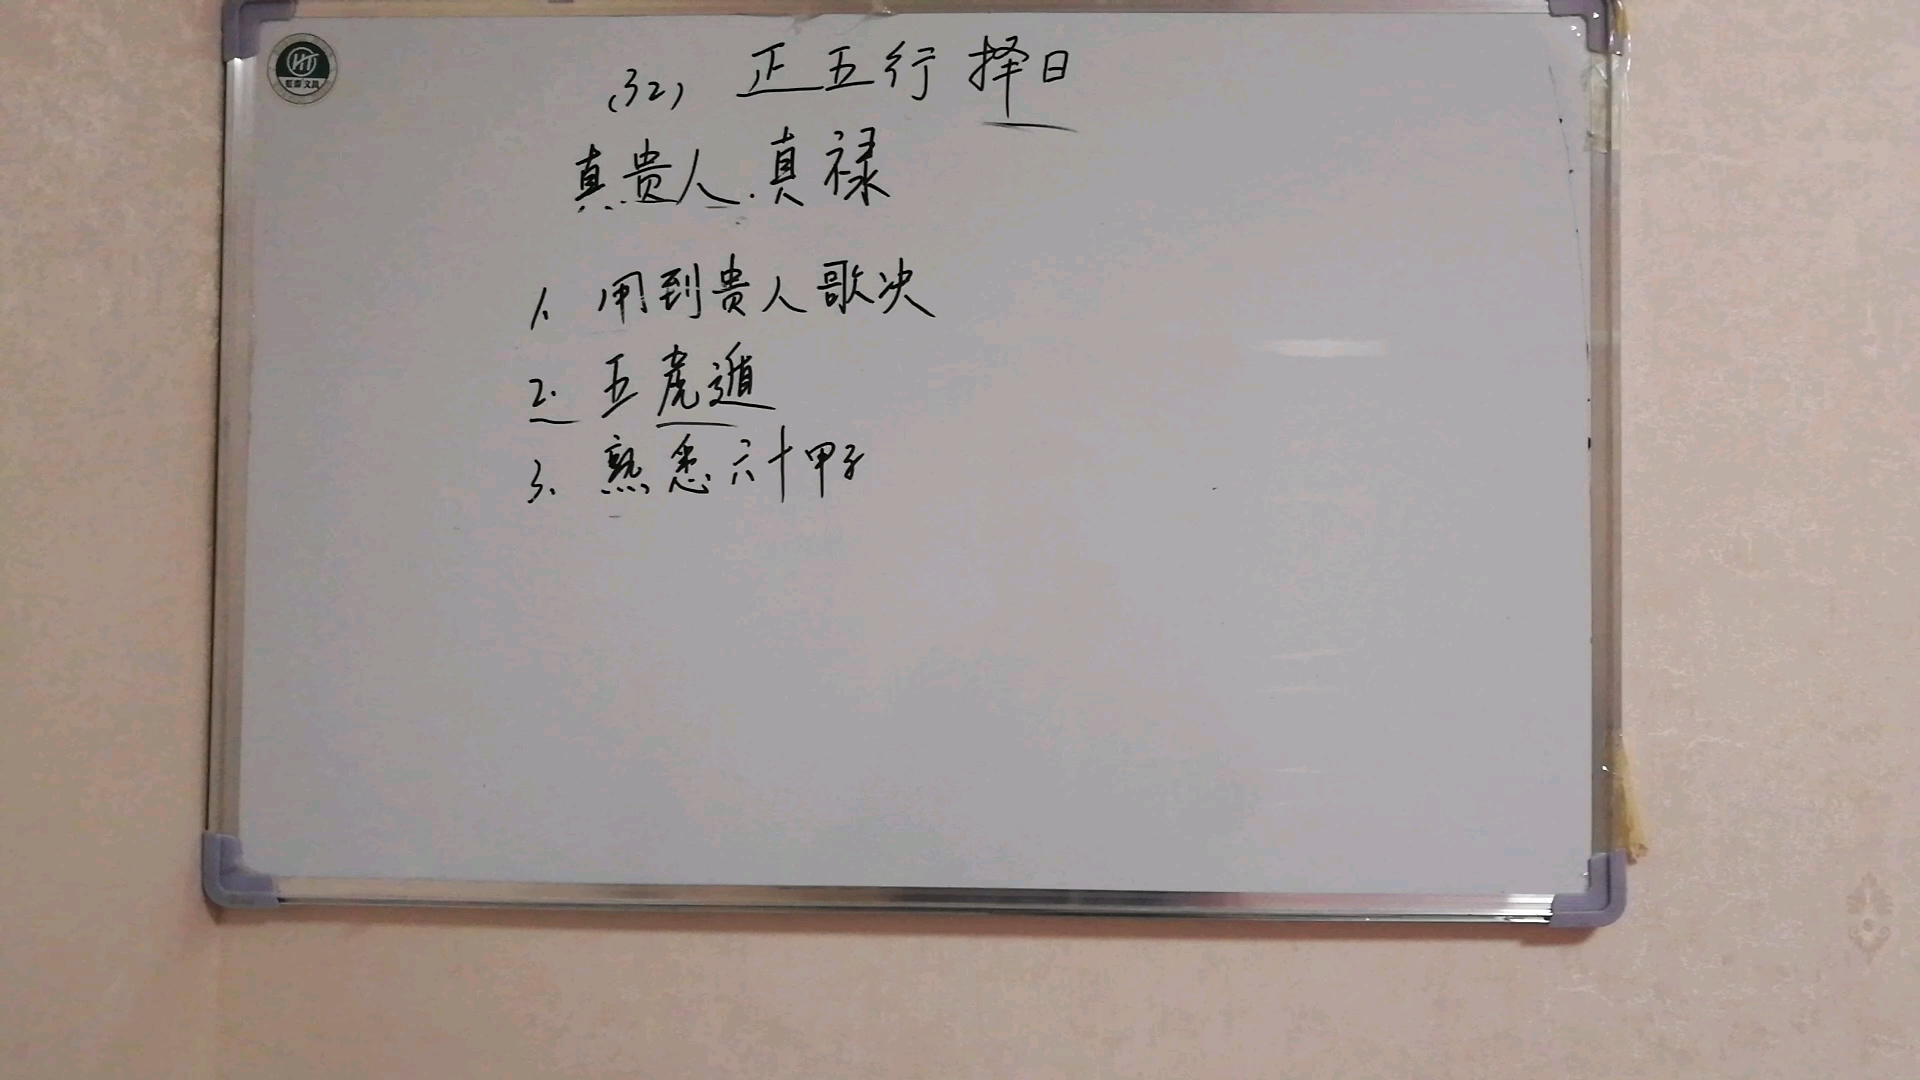 (32) 正五行择日
真贵人.真禄
1. 用到贵人歌决
2. 五虎遁
3. 熟悉六十甲子